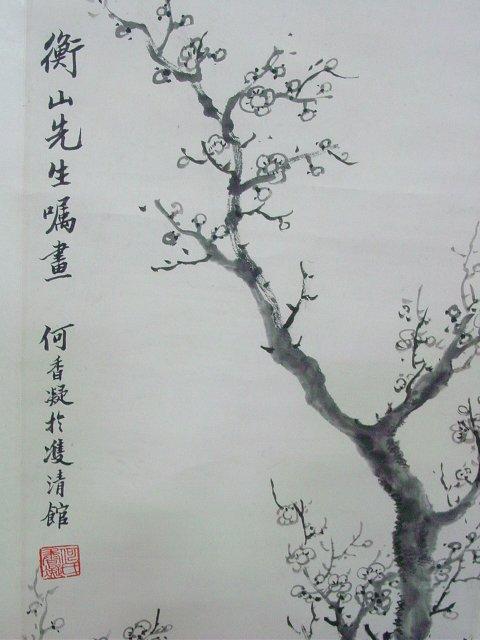 衡山先生嘱畫
何香凝於雙清館